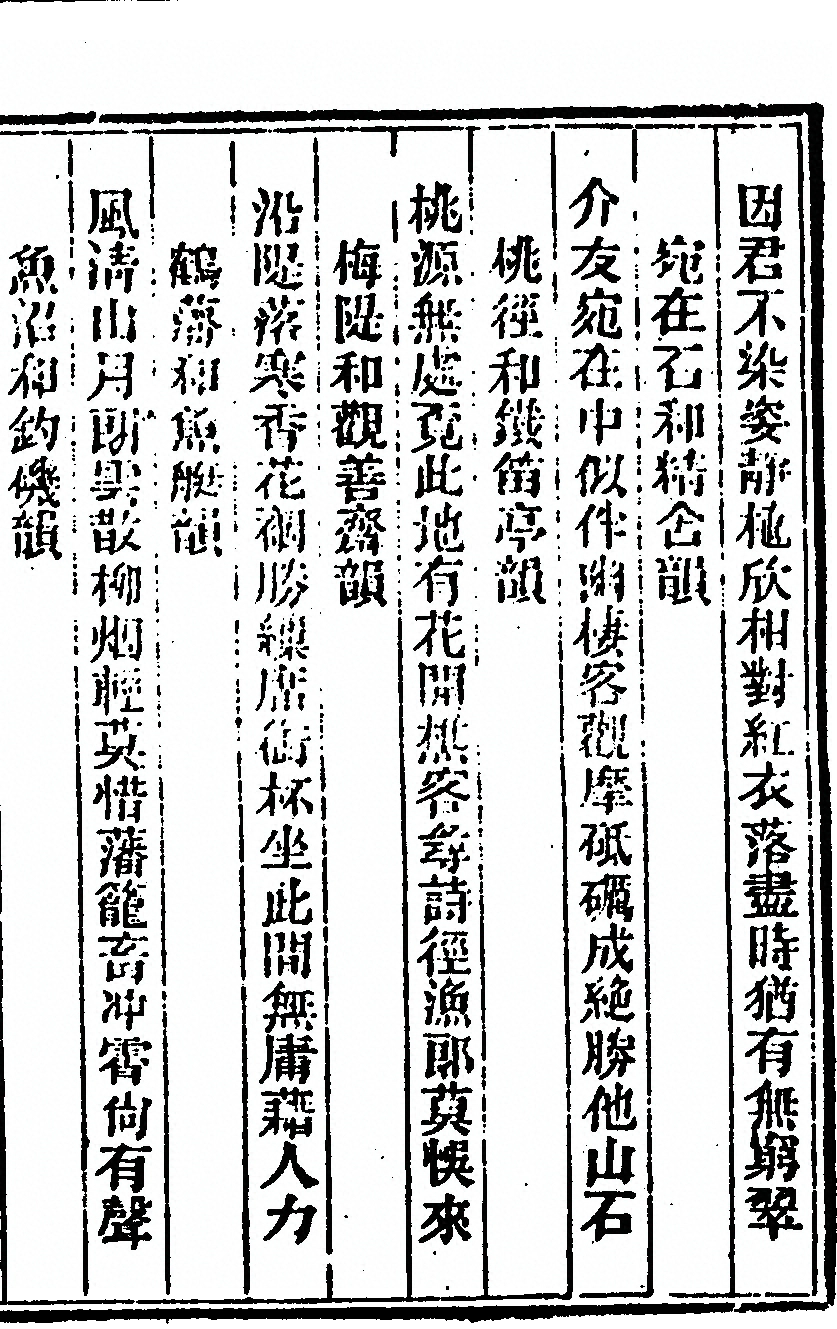 因君不染姿靜極欣相對紅衣落盡時猶有無窮翠
宛在石和精舍韻
介友宛在中似伴幽棲客觀摩砥礪成絶勝他山石
桃徑和鐵笛亭韻
桃源無處覓此地有花開樵客尋詩徑漁郎莫悞來
梅隄和觀善齋韻
沿隄落寒香花裀勝縟席銜杯坐此間無庸藉人力
鶴藩和魚艇韻
風清山月朗雲散柳烟輕莫惜藩籠畜冲霄尙有聲
魚沼和釣磯韻